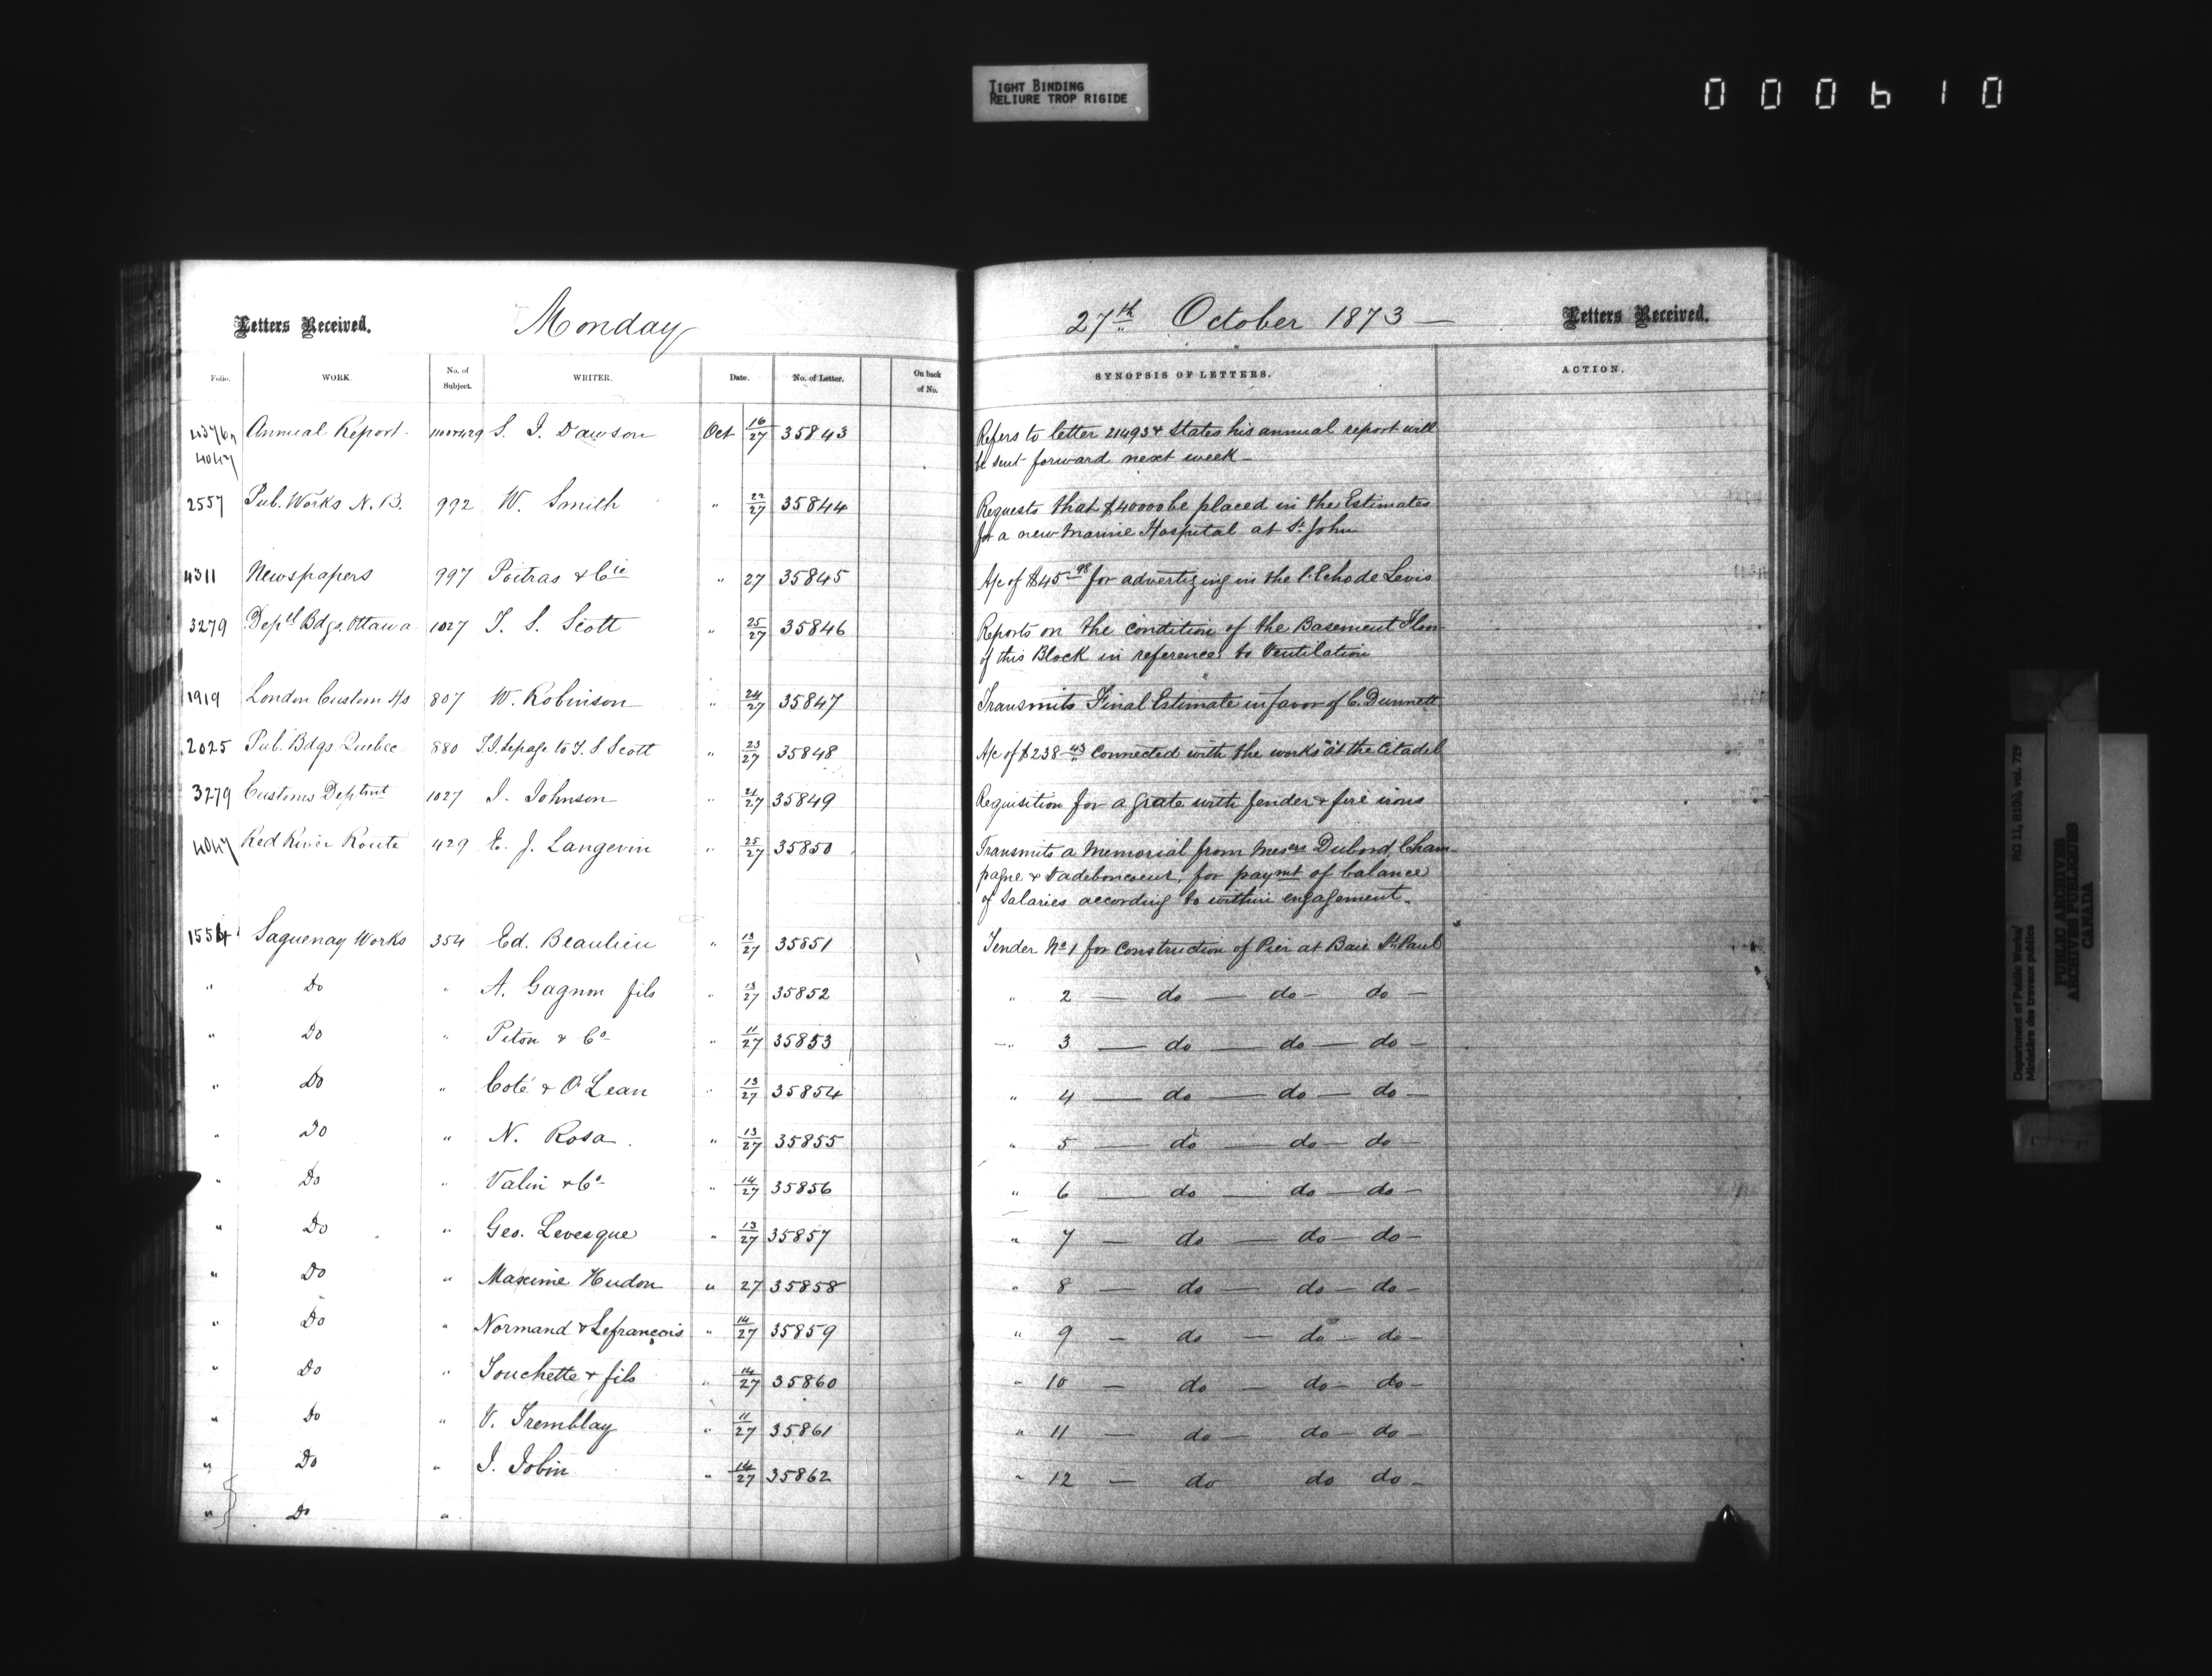 TIGHT BINDING
RELIURE TROP RIGIDE
000610
Letters Received. Monday
Folio. WORK. No. of Subject. WRITER. Date. No. of Letter. On back of No.
4376 Annual Report S. J. Dawson Oct 16/27 35843
4047
2557 Pub. Works N. B. 992 W. Smith " 22/27 35844
4311 Newspapers 997 Poitras & Cie " 27 35845
3279 Deptl Bdgs, Ottawa 1027 T. S. Scott " 25/27 35846
1919 London Custom Hs 807 W. Robinson " 24/27 35847
2025 Pub. Bdgs Quebec 880 Lepage to T. S Scott " 23/27 35848
3279 Customs Deptmt 1027 J. Johnson " 21/27 35849
4047 Red River Route 429 E. J. Langevin " 25/27 35850
1554 Saguenay Works 354 Ed. Beaulieu " 13/27 35851
" Do " A. Gagnon fils " 13/27 35852
" Do " Piton & Co " 11/27 35853
" Do " Coté & O'Lean " 13/27 35854
" Do " N. Rosa " 13/27 35855
" Do " Valin & Co " 14/27 35856
" Do " Geo. Levesque " 13/27 35857
" Do " Maxime Hudon " 27 35858
" Do " Normand & Lefrançois " 14/27 35859
" Do " Touchette & fils " 14/27 35860
" Do " V. Tremblay " 11/27 35861
" Do " J. Jobin " 14/27 35862
" Do "
27th October 1873 — Letters Received.
SYNOPSIS OF LETTERS. ACTION.
Refers to letter 21493 & States his annual report will
be sent forward next week —
Requests that $40000 be placed in the Estimates
for a new Marine Hospital at St. John
A/c of $45 98 for advertizing in the l'Echo de Levis
Reports on the condition of the Basement Floor
of this Block in reference to Ventilation
Transmits Final Estimate in favor of C. Dunnett
A/c of $238 43 connected with the works at the Citadel
Requisition for a grate with fender & fire irons
Transmits a Memorial from Messrs Dubord, Cham-
pagne & Ladeboncoeur, for paymt of balance
of Salaries according to within engagement.
Tender No 1 for Construction of Pier at Baie St. Paul
" 2 — do — do — do —
" 3 — do — do — do —
" 4 — do — do — do —
" 5 — do — do — do —
" 6 — do — do — do —
" 7 — do — do — do —
" 8 — do — do — do —
" 9 — do — do — do —
" 10 — do — do — do —
" 11 — do — do — do —
" 12 — do do do —
Department of Public Works/
Ministère des travaux publics
RG 11, B1(b), vol. 729
PUBLIC ARCHIVES
ARCHIVES PUBLIQUES
CANADA